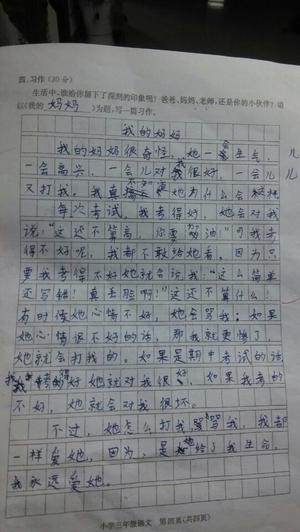 四、习作(30分)
生活中,谁给你留下了深刻的印象呢?爸爸、妈妈、老师,还是你的小伙伴?请
以《我的 妈妈 》为题,写一篇习作。
我的妈妈
我的妈妈很奇怪,她一会生气,儿
一会高兴,一会儿对我很好,一会儿
又打我。我真 她为什么会
每次考试,我考得好,她会对我
说:“这还不算高,你要加油!”我考
得不好呢,我都不敢给她看。因为只
要我考得不好她就会说我“这么简单
还写错!真丢脸啊!”这还不算什么!
有时候她心情不好,她会骂我;如果
她心情很不好的话,那我就更惨了,
她就会打我的。如果是期中考试的话
我考得好她就对我很好,如果我考的
不好,她就会对我很坏。
不过,她怎么打我骂我,我都
一样爱她,因为,是她给了我生命,
我永远爱她。
小学三年级语文 第四页(共四页)